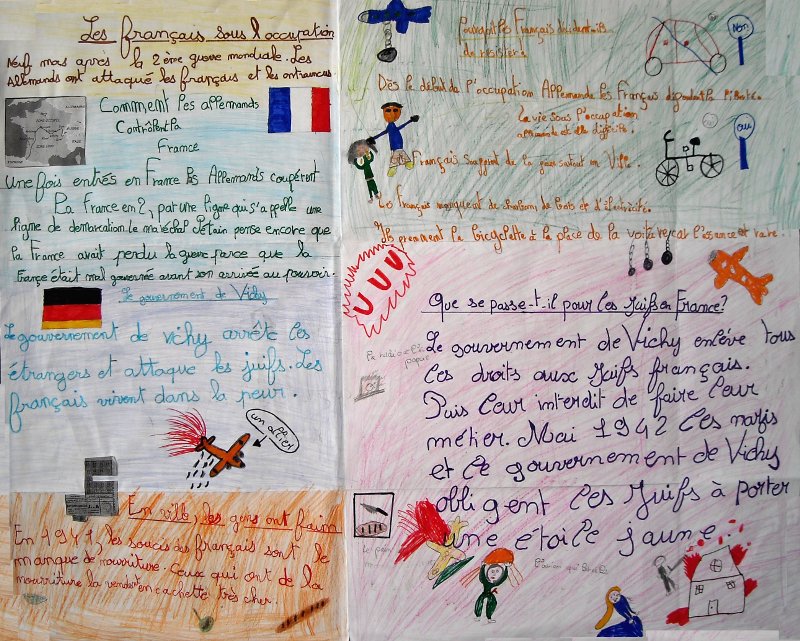 Les français sous l'occupation
Neuf mas après la 2ère guerre mondiale. Les
Allemands ont attaqué les français et les ont
Comment les allemands
Contrôlent la
France
Une fois entrés en France les Allemands coupèrent
la France en 2, par une ligne qui s'appelle une
ligne de demarcation. le maréchal Pétain pense encore que
la France avait perdu la guerre parce que la
France était mal gouvernée avant son arrivée au pouvoir.
Le gouvernement de Vichy
Le gouvernement de vichy arrête les
étrangers et attaque les juifs. Les
français vivent dans la peur.
En ville, les gens ont faim
En 1941, les soucis des français sont le
manque de nourriture. Ceux qui ont de la
nourriture la vendent en cachette très cher.
Pourquoi les Français
de résister
Non
Dès le début de l'occupation Allemande les Français
la vie sous l'occupation
allemande et
ou
Français souffrent de la faim surtout en Ville.
Les Français manquent de charbon de bois et d'électricité.
Ils prennent la bicyclette à la place de la voiture car l'essence est rare.
Que se passe-t-il pour les Juifs en France?
Le gouvernement de Vichy enlève tous
les droits aux Juifs français.
Puis leur interdit de faire leur
métier. Mai 1942 les nazis
et le gouvernement de Vichy
obligent les Juifs à porter
une etoile jaune.